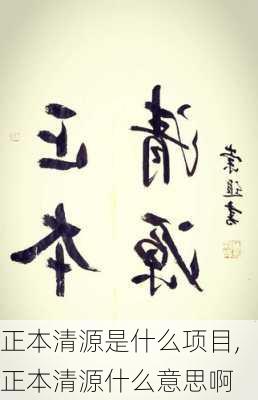 正本
清源
正本清源是什么项目,
正本清源什么意思啊